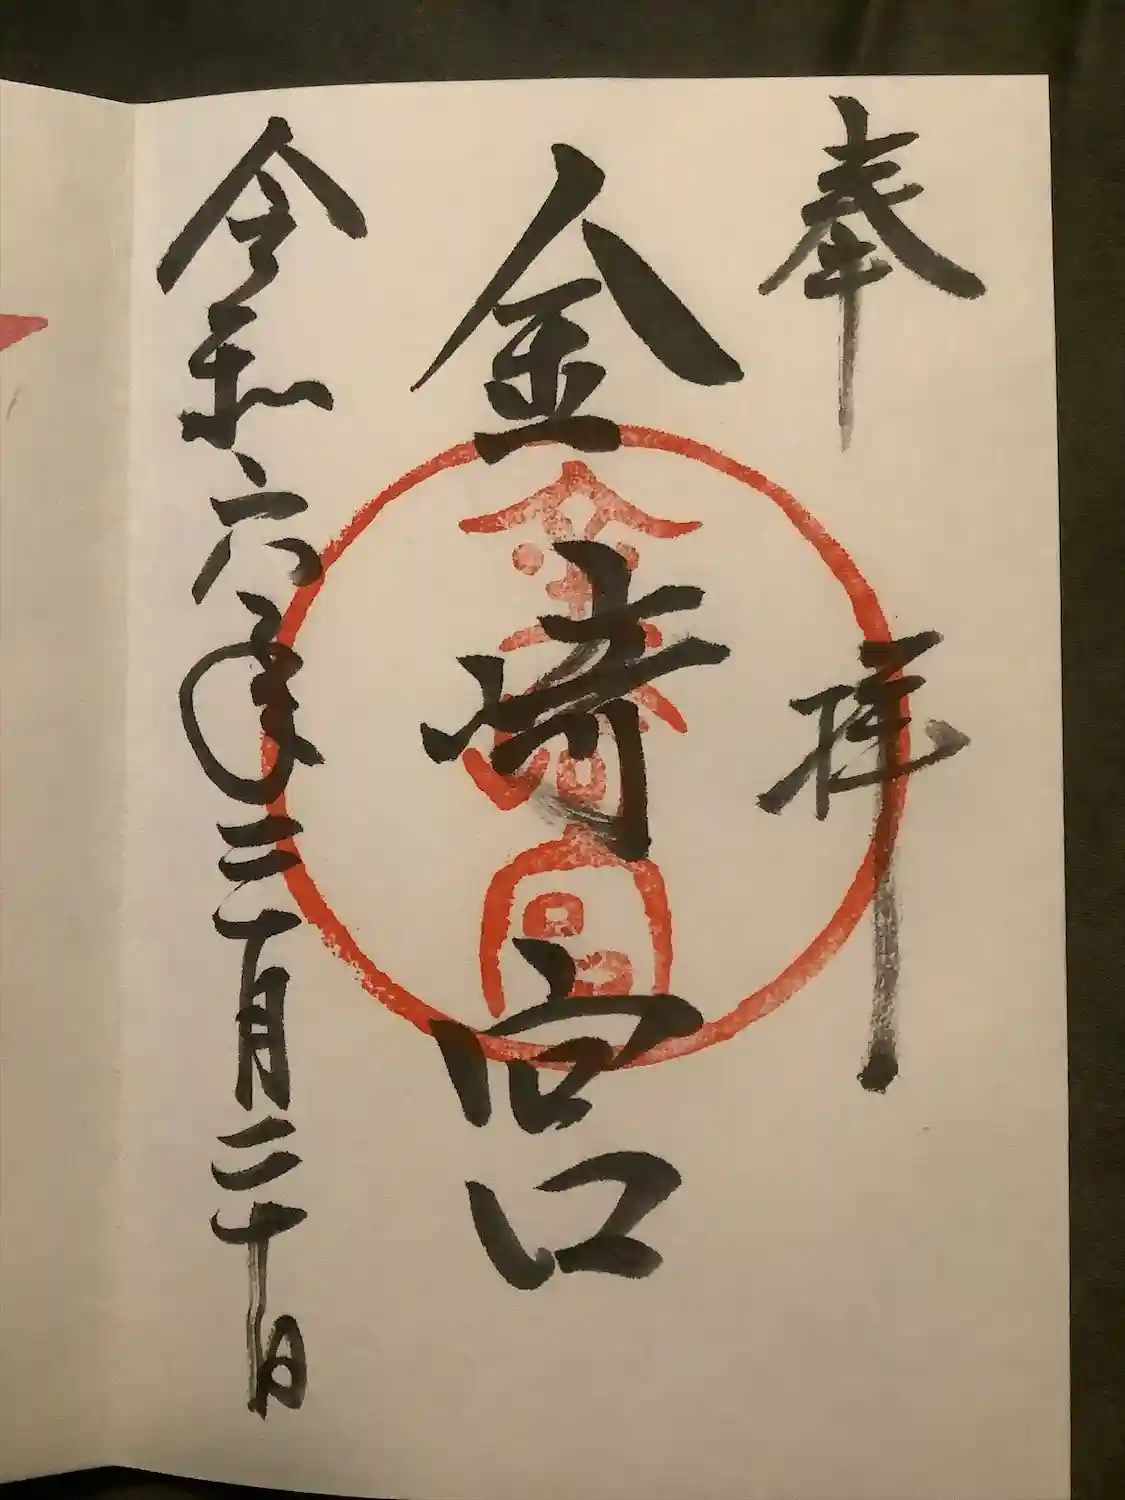 奉拝
金崎宮
令和六年三月二十日
金崎宮